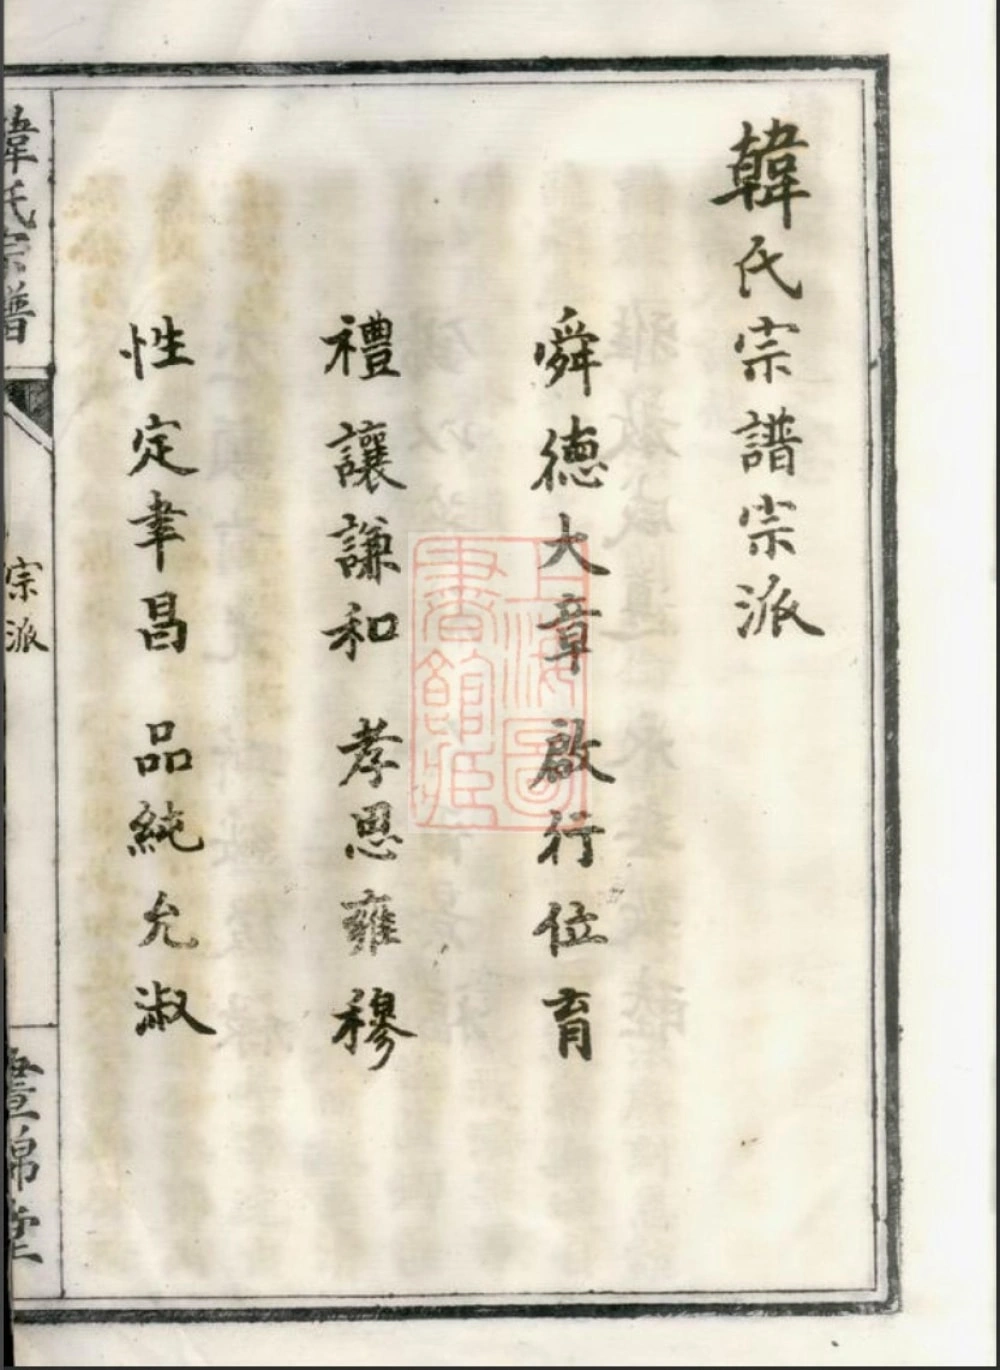 韓氏宗譜宗派
舜德大章 啟行位育
禮讓謙和 孝思雍穆
性定聿昌 品純允淑
韓氏宗譜
宗派
晝錦堂
上海圖書館藏